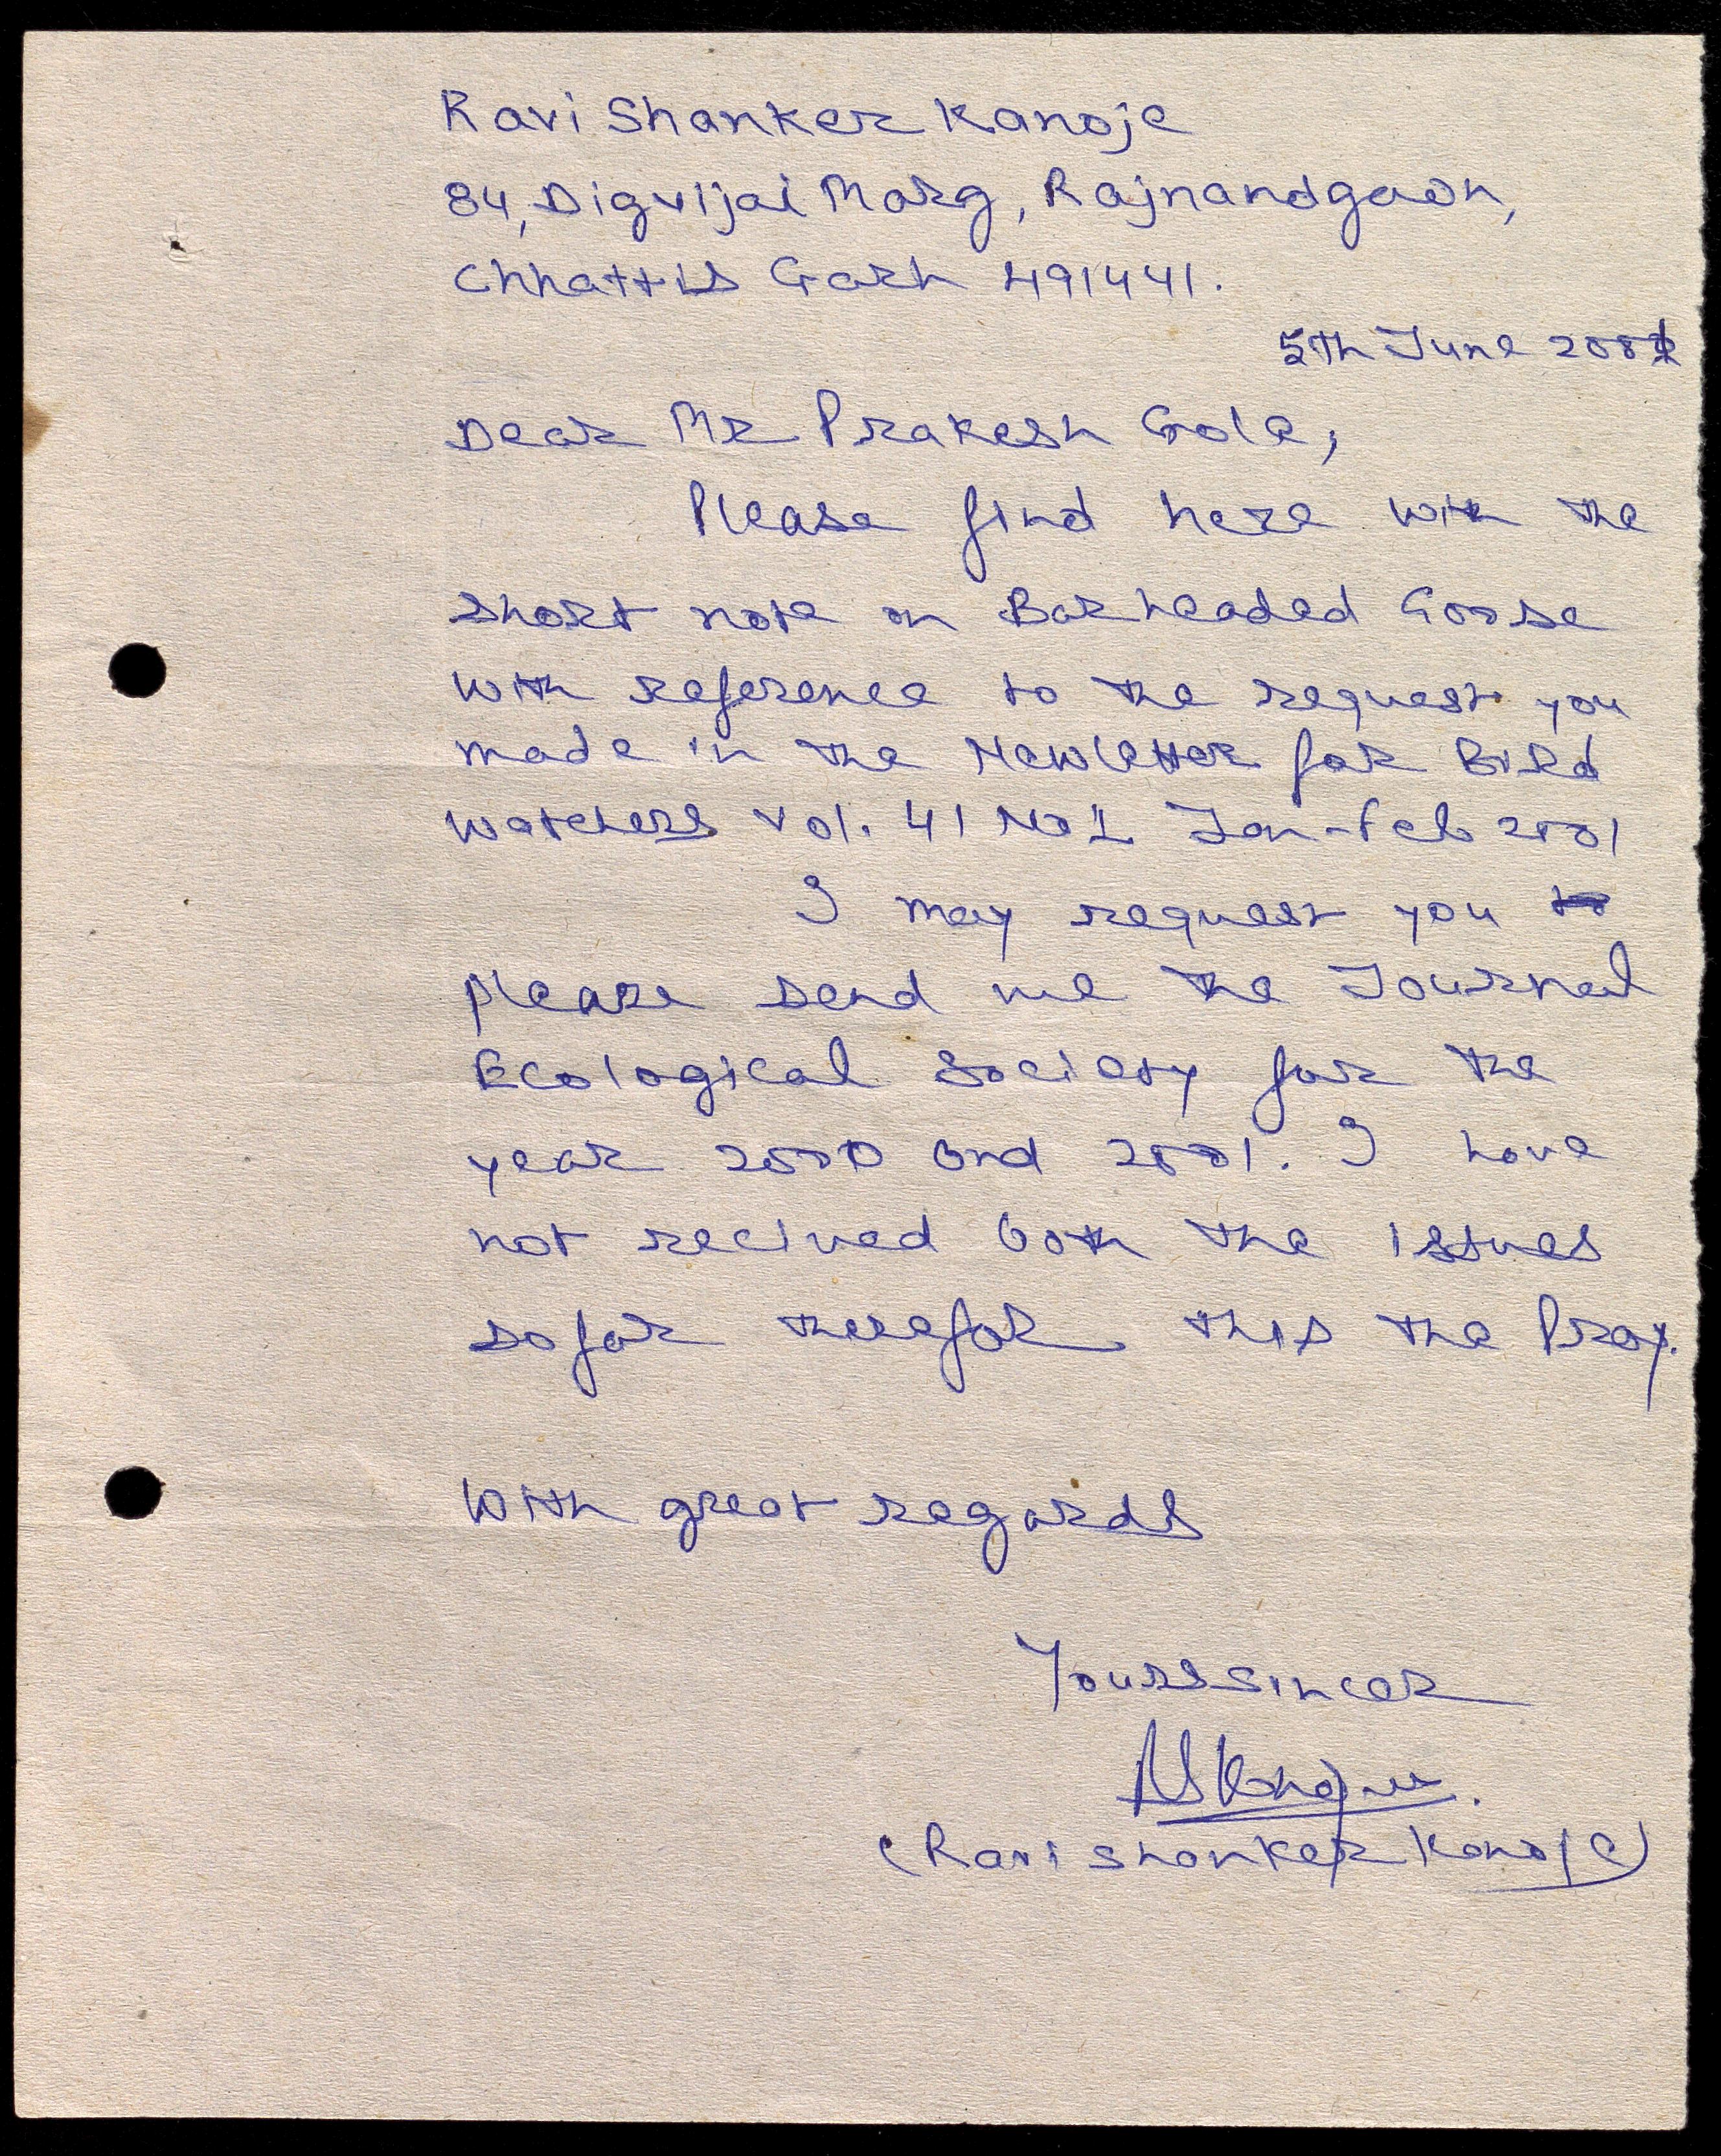 Ravi Shanker Kanoje
84, Digvijai Marg, Rajnandgaon,
Chhattis Garh 491441.
5th June 2001
Dear Mr Prakesh Gole,
Please find here with the
short note on Barheaded Goose
with reference to the request you
made in the Newletter for Bird
watchers Vol. 41 No 1 Jan-Feb 2001
I may request you to
please send me the Journal
Ecological Society for the
year 2000 and 2001. I have
not recived both the issues
so far therefor this the Pray.
With great regards
Yours sincer
RSKanoje.
(Ravi shanker Kanoje)